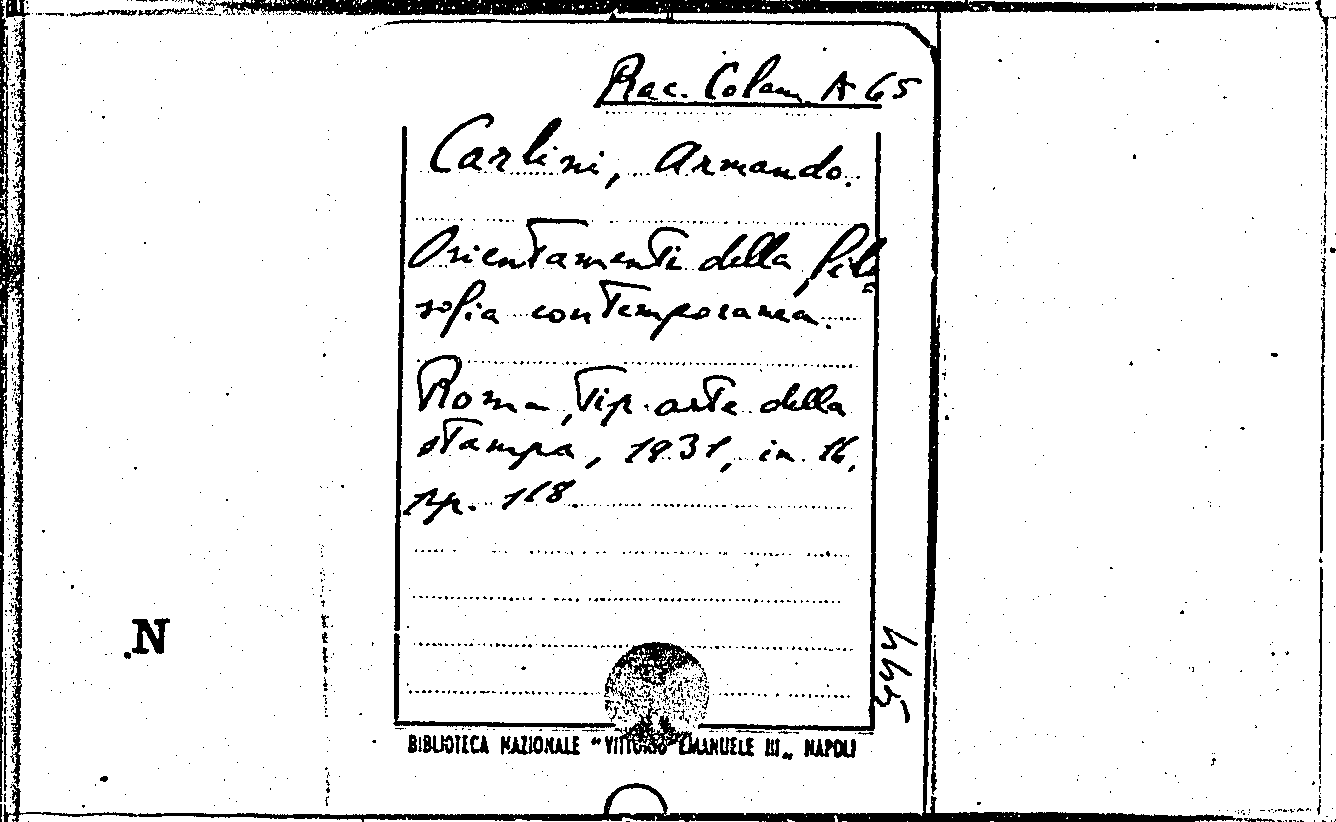 Rac. Colam A 65
Carlini, Armando.
Orientamenti della filo=
sofia contemporanea.
Roma, Tip. arte della
stampa, 1931, in 16,
pp. 118.
N
BIBLIOTECA NAZIONALE "VITTORIO EMANUELE III„ NAPOLI